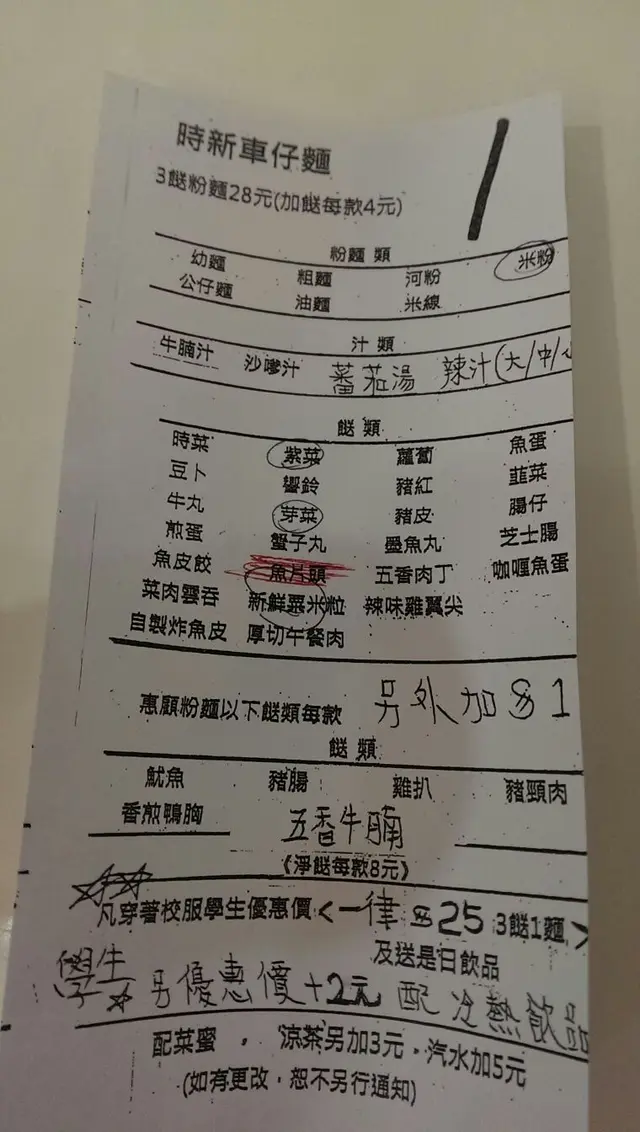 時新車仔麵
3餸粉麵28元(加餸每款4元)
粉麵類
幼麵 粗麵 河粉 米粉
公仔麵 油麵 米線
汁類
牛腩汁 沙嗲汁 蕃茄湯 辣汁(大/中/小
餸類
時菜 紫菜 蘿蔔 魚蛋
豆卜 響鈴 豬紅 韮菜
牛丸 芽菜 豬皮 腸仔
煎蛋 蟹子丸 墨魚丸 芝士腸
魚皮餃 魚片頭 五香肉丁 咖喱魚蛋
菜肉雲吞 新鮮粟米粒 辣味雞翼尖
自製炸魚皮 厚切午餐肉
惠顧粉麵以下餸類每款 另外加$1
餸類
魷魚 豬腸 雞扒 豬頸肉
香煎鴨胸 五香牛腩
《淨餸每款8元》
凡穿著校服學生優惠價<一律$25 3餸1麵>
及送是日飲品
學生 另優惠價+2元 配冷熱飲品
配菜蜜，涼茶另加3元，汽水加5元
(如有更改，恕不另行通知)